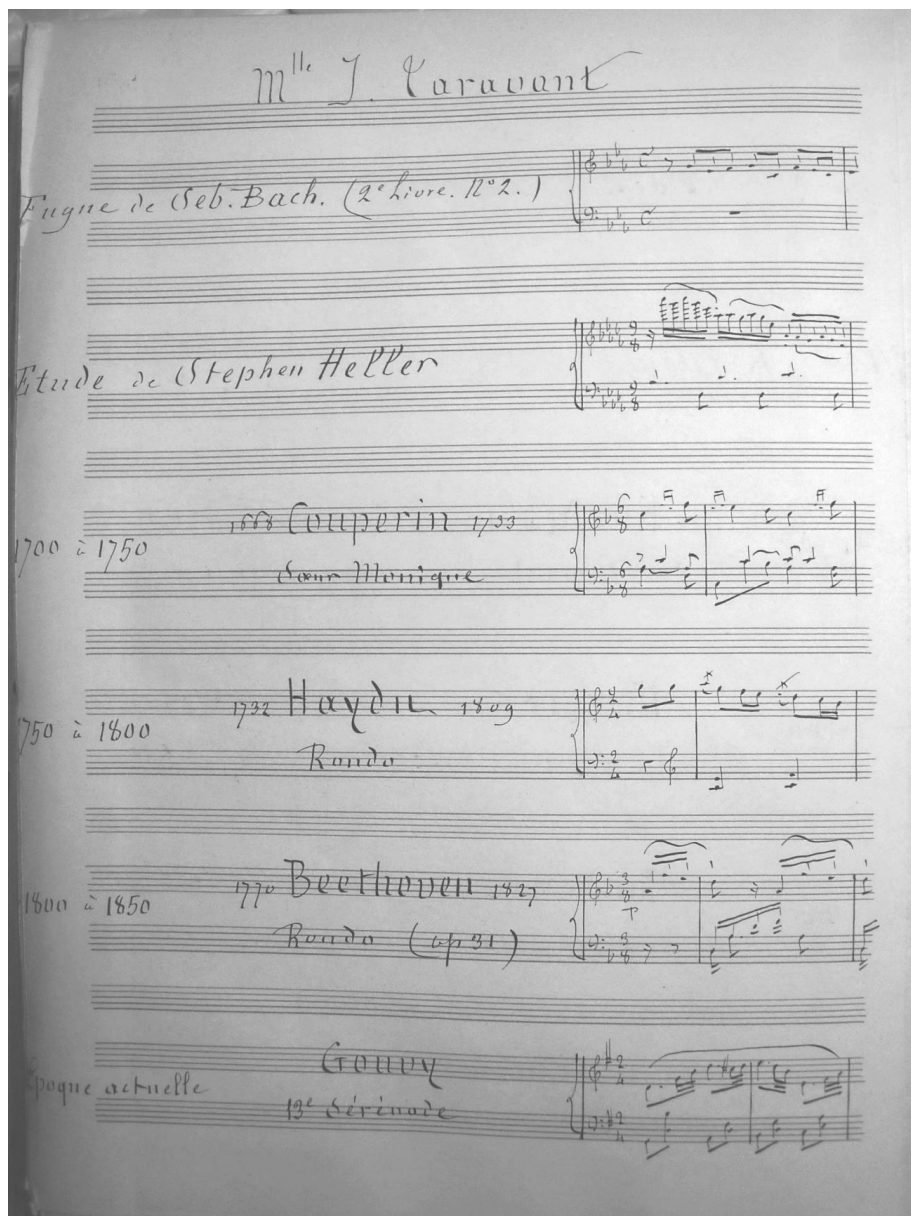 Mlle J. Taravant
Fugue de Seb. Bach. (2e Livre. No 2.)
Etude de Stephen Heller
1700 à 1750
1668 Couperin 1733
Sœur Monique
1750 à 1800
1732 Haydn 1809
Rondo
1800 à 1850
1770 Beethoven 1827
Rondo (op 31)
Epoque actuelle
Gouvy
13e Sérénade